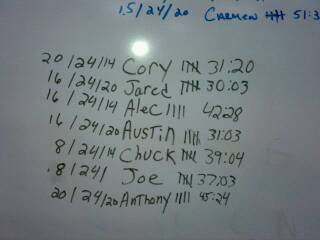 1.5/24/20 CARMEN 51:3
20/24/14 Cory 31:20
16/24/20 Jared 30:03
16/24/14 Alec 42:28
16/24/20 AUSTIN 31:03
8/24/14 Chuck 39:04
.8/24/ Joe 37:03
20/24/20 Anthony 45:24